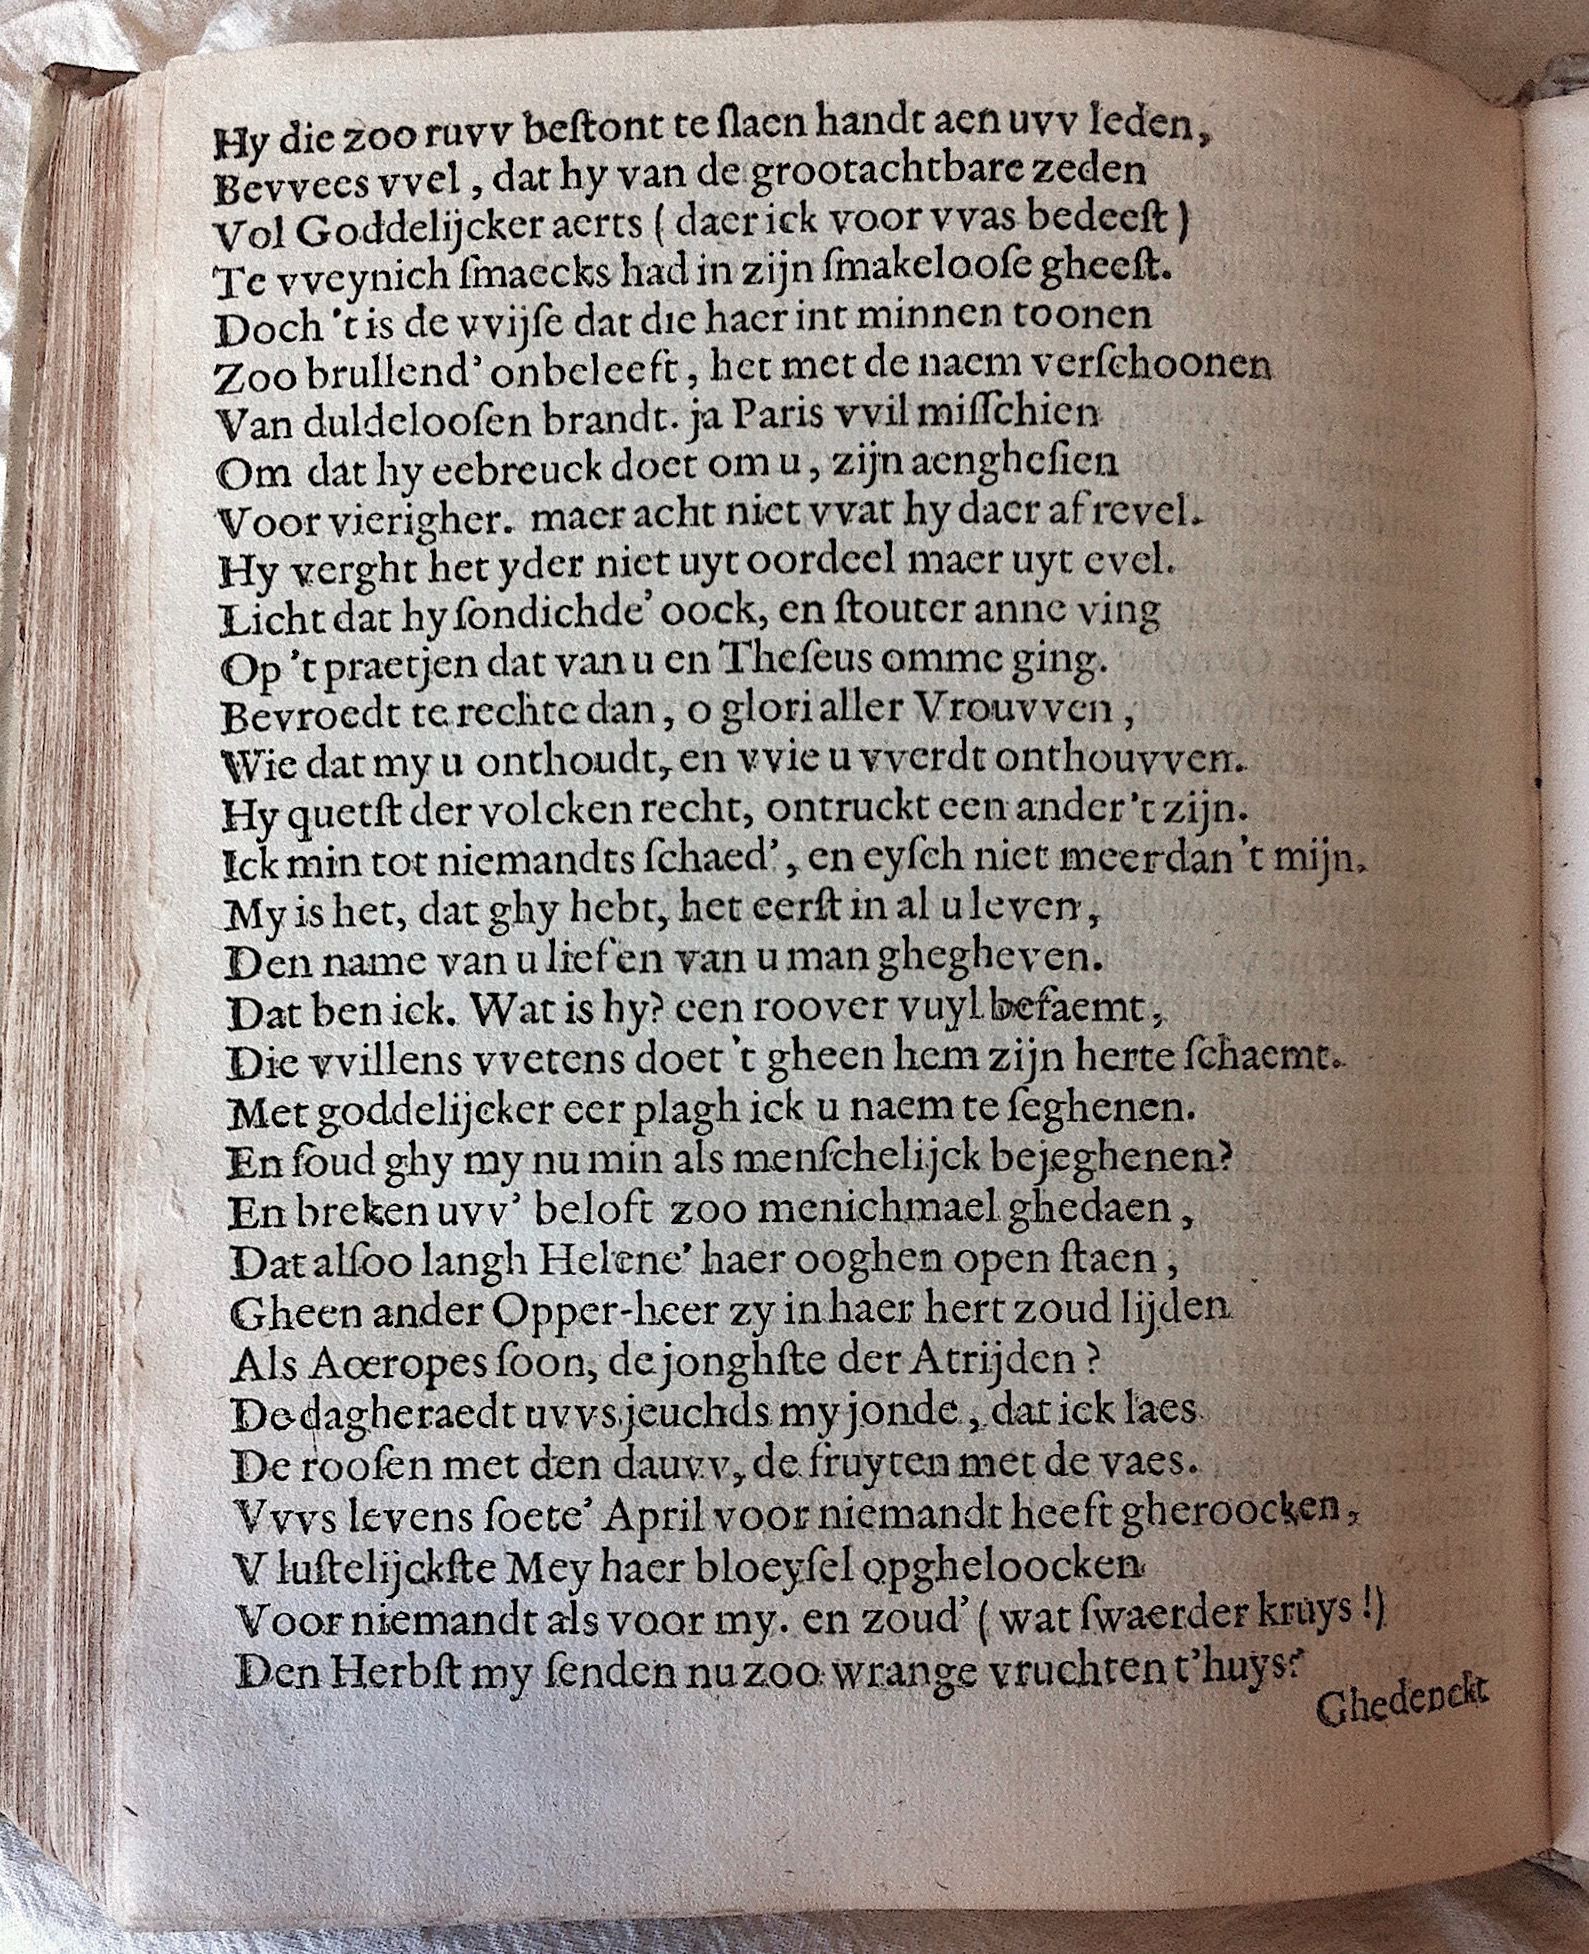 Hy die zoo ruvv beſtont te ſlaen handt aen uvv leden,
Bevvees vvel, dat hy van de grootachtbare zeden
Vol Goddelijcker aerts ( daer ick voor vvas bedeeſt )
Te vveynich ſmaecks had in zijn ſmakelooſe gheeſt.
Doch 't is de vvijſe dat die haer int minnen toonen
Zoo brullend' onbeleeft, het met de naem verſchoonen
Van duldelooſen brandt. ja Paris vvil miſſchien
Om dat hy eebreuck doet om u, zijn aengheſien
Voor vierigher. maer acht niet vvat hy daer af revel.
Hy verght het yder niet uyt oordeel maer uyt evel.
Licht dat hy ſondichde' oock, en ſtouter anne ving
Op 't praetjen dat van u en Theſeus omme ging.
Bevroedt te rechte dan, o glori aller Vrouvven,
Wie dat my u onthoudt, en vvie u vverdt onthouvven.
Hy quetſt der volcken recht, ontruckt een ander 't zijn.
Ick min tot niemandts ſchaed', en eyſch niet meer dan 't mijn.
My is het, dat ghy hebt, het eerſt in al u leven,
Den name van u lief en van u man ghegheven.
Dat ben ick. Wat is hy? een roover vuyl befaemt,
Die vvillens vvetens doet 't gheen hem zijn herte ſchaemt.
Met goddelijcker eer plagh ick u naem te ſeghenen.
En ſoud ghy my nu min als menſchelijck bejeghenen?
En breken uvv' beloft zoo menichmael ghedaen,
Dat alſoo langh Helene' haer ooghen open ſtaen,
Gheen ander Opper-heer zy in haer hert zoud lijden
Als Aœropes ſoon, de jonghſte der Atrijden?
De dagheraedt uvvs jeuchds my jonde, dat ick laes
De rooſen met den dauvv, de fruyten met de vaes.
Vvvs levens ſoete' April voor niemandt heeft gheroocken,
V luſtelijckſte Mey haer bloeyſel opgheloocken
Voor niemandt als voor my. en zoud' ( wat ſwaerder kruys !)
Den Herbſt my ſenden nu zoo wrange vruchten t'huys?
Ghedenckt